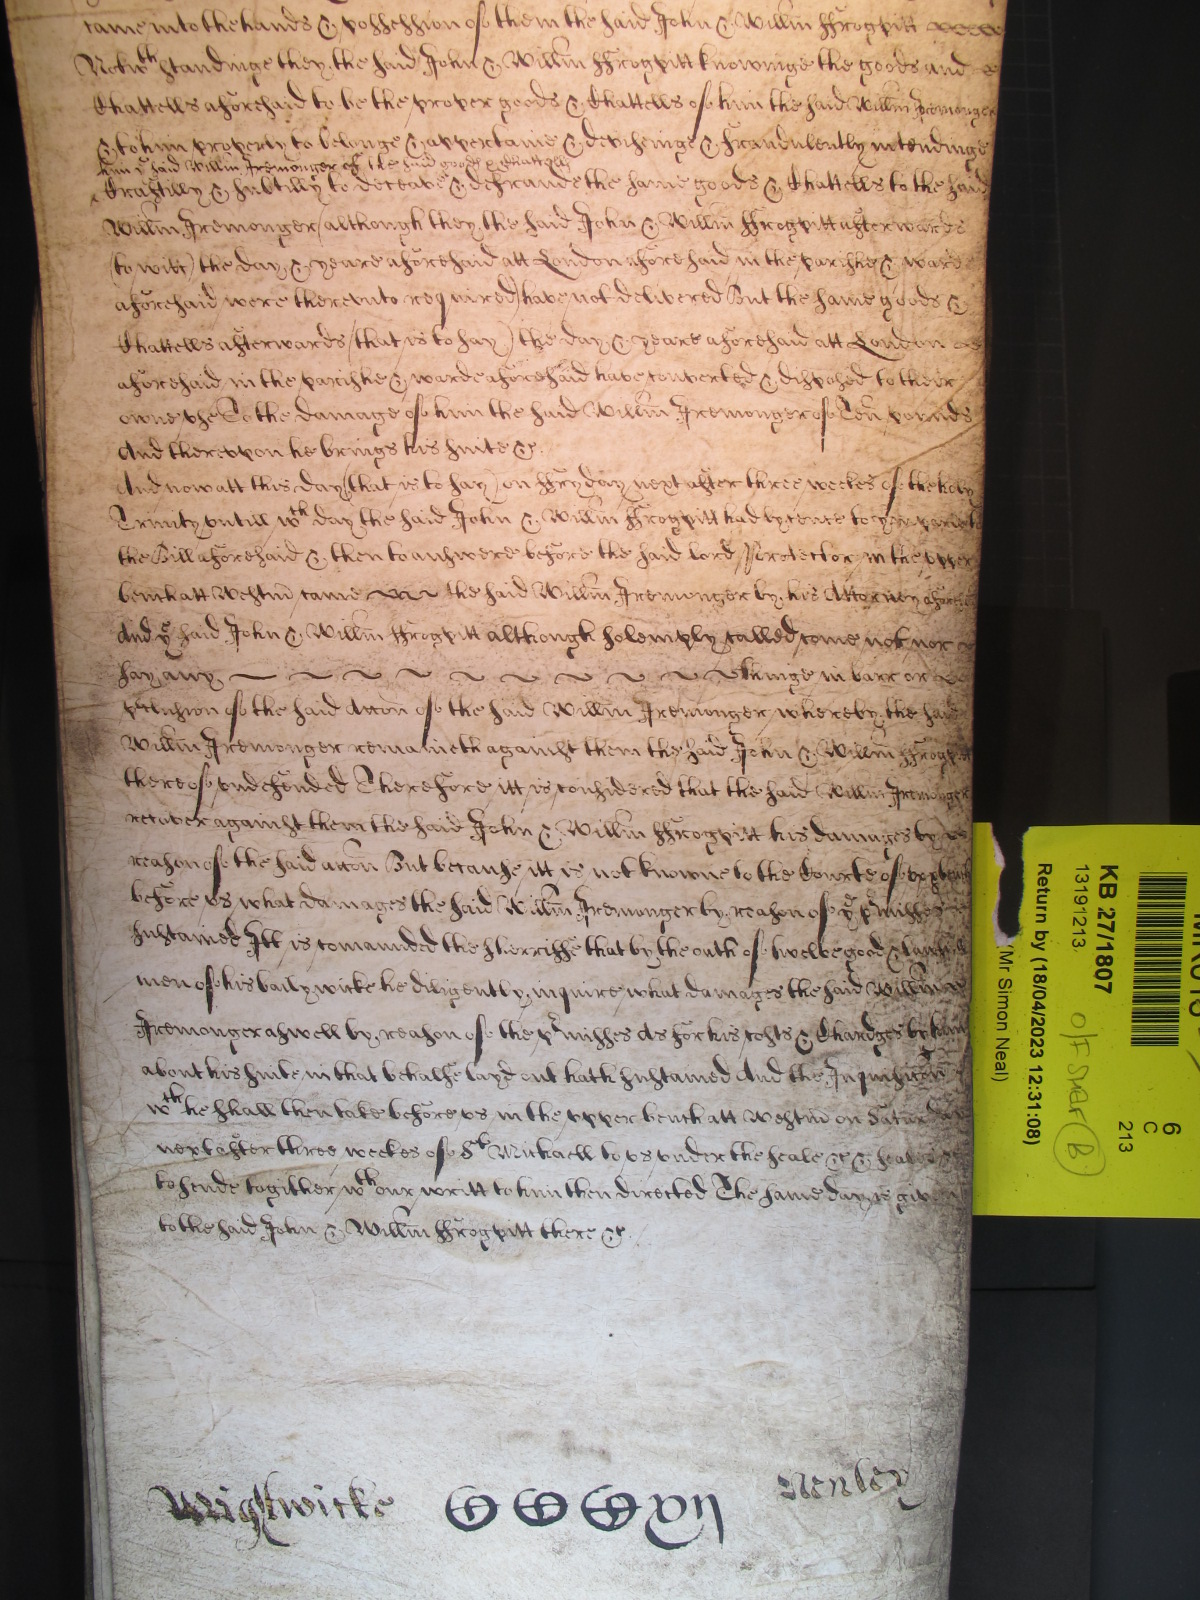 came into the hands & possession of them the said John & Willm ffrogpitt
Notwthstandinge they the said John & Willm ffrogpitt knowinge the goods and
Chattells aforesaid to be the proper goods & Chattells of him the said Willm Iremonger
& to him properly to belonge & appertaine & deviseinge & fraudulently intendinge
him ye said Willm Iremonger of the said goods & Chattells
Craftilly & subtilly to deceave & defraude the same goods & Chattells to the said
Willm Iremonger (although they the said John & Willm ffrogpitt afterwards
(to witt) the day & yeare aforesaid att London aforesaid in the parishe & warde
aforesaid were therevnto required) have not delivered But the same goods &
Chattells afterwards (that is to say) the day & yeare aforesaid att London
aforesaid in the parishe & warde aforesaid have converted & disposed to their
owne vse To the damage of him the said Willm Iremonger of Tenn pounds
And therevpon he brings his suite &c.
And now att this day (that is to say) on ffryday next after three weekes of the holy
Trinity vntill wch day the said John & Willm ffrogpitt had lycence to
the Bill aforesaid & then to answere before the said lord Protector in the vpper
bench att Westm came the said Willm Iremonger by his Attorney
And ye said John & Willm ffrogpitt although solemply called come not nor
say any thinge in barr or
pclusion of the said accon of the said Willm Iremonger whereby the said
Willm Iremonger remaineth against them the said John & Willm ffrogpitt
thereof vndefended Therefore itt is considered that the said Willm Iremonger
recover against them the said John & Willm ffrogpitt his damages by
reason of the said accon But because itt is not knowne to the Courte of
before vs what damages the said Willm Iremonger by reason of ye pmisses
sustained Itt is comanded the sherriffe that by the oath of twelve good & lawfull
men of his baily wicke he diligently inquire what damages the said Willm
Iremonger aswell by reason of the pmisses as for his costs & Chardges by him
about his suite in that behalfe layd out hath sustained And the Inquisicon
wch he shall then take before vs in the vpper bench att Westm on Saturday
next after three weekes of St Michaell to vs vnder the seale &c &
to sende togither wth our writt to him then directed The same day is given
to the said John & Willm ffrogpitt there &c.
Wightwicke CCCxij Henley
6
C
213
KB 27/1807
13191213
O/F SMAF (B)
Return by (18/04/2023 12:31:08)
(Mr Simon Neal)